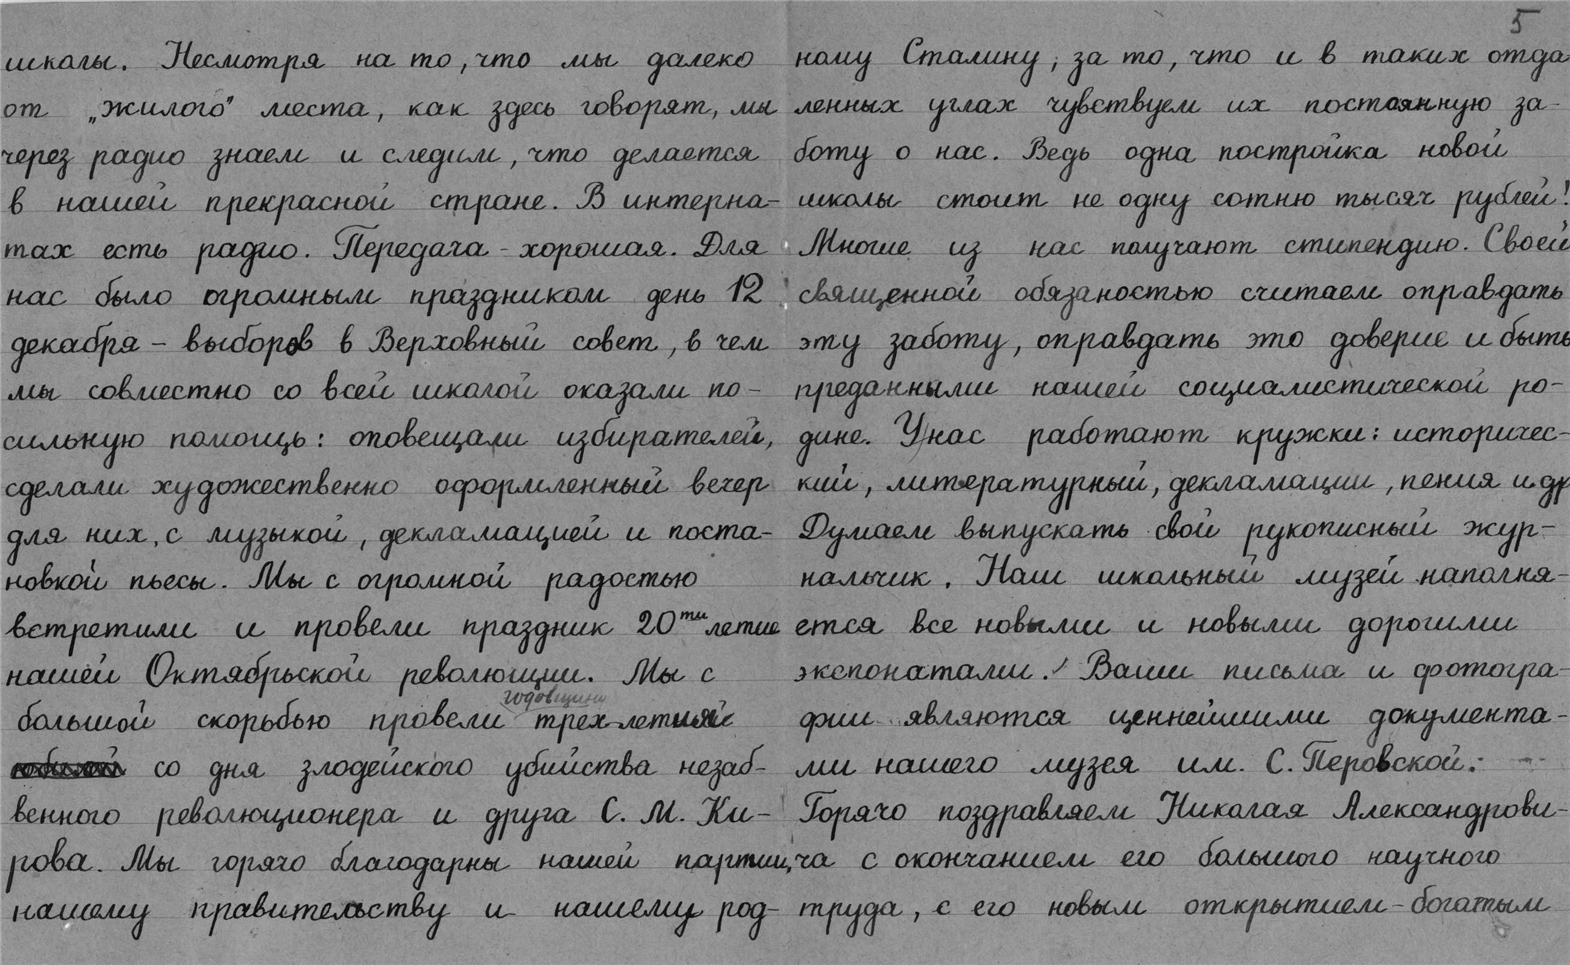 школы. Несмотря на то, что мы далеко
от „жилого" места, как здесь говорят, мы
через радио знаем и следим, что делается
в нашей прекрасной стране. В интерна-
тах есть радио. Передача - хорошая. Для
нас было огромным праздником день 12
декабря – выборов в Верховный совет, в чем
мы совместно со всей школой оказали по-
сильную помощь: оповещали избирателей,
сделали художественно оформленный вечер
для них, с музыкой, декламацией и поста-
новкой пьесы. Мы с огромной радостью
встретили и провели праздник 20ти летие
нашей Октябрьской революции. Мы с
годовщину
большой скорбью провели трех-летний
юбилей со дня злодейского убийства незаб-
венного революционера и друга С. М. Ки-
рова. Мы горячо благодарны нашей партии,
нашему правительству и нашему род-
5
ному Сталину, за то, что и в таких отда
ленных углах чувствуем их постоянную за-
боту о нас. Ведь одна постройка новой
школы стоит не одну сотню тысяч рублей!
Многие из нас получают стипендию. Своей
священной обязаностью считаем оправдать
эту заботу, оправдать это доверие и быть
преданными нашей социалистической ро-
дине. У нас работают кружки: историчес-
кий, литературный, декламации, пения и др
Думаем выпускать свой рукописный жур-
нальчик. Наш школьный музей наполня-
ется все новыми и новыми дорогими
экспонатами. Ваши письма и фотогра-
фии являются ценнейшими документа-
ми нашего музея им. С. Перовской.
Горячо поздравляем Николая Александрови-
ча с окончанием его большого научного
труда, с его новым открытием - богатым